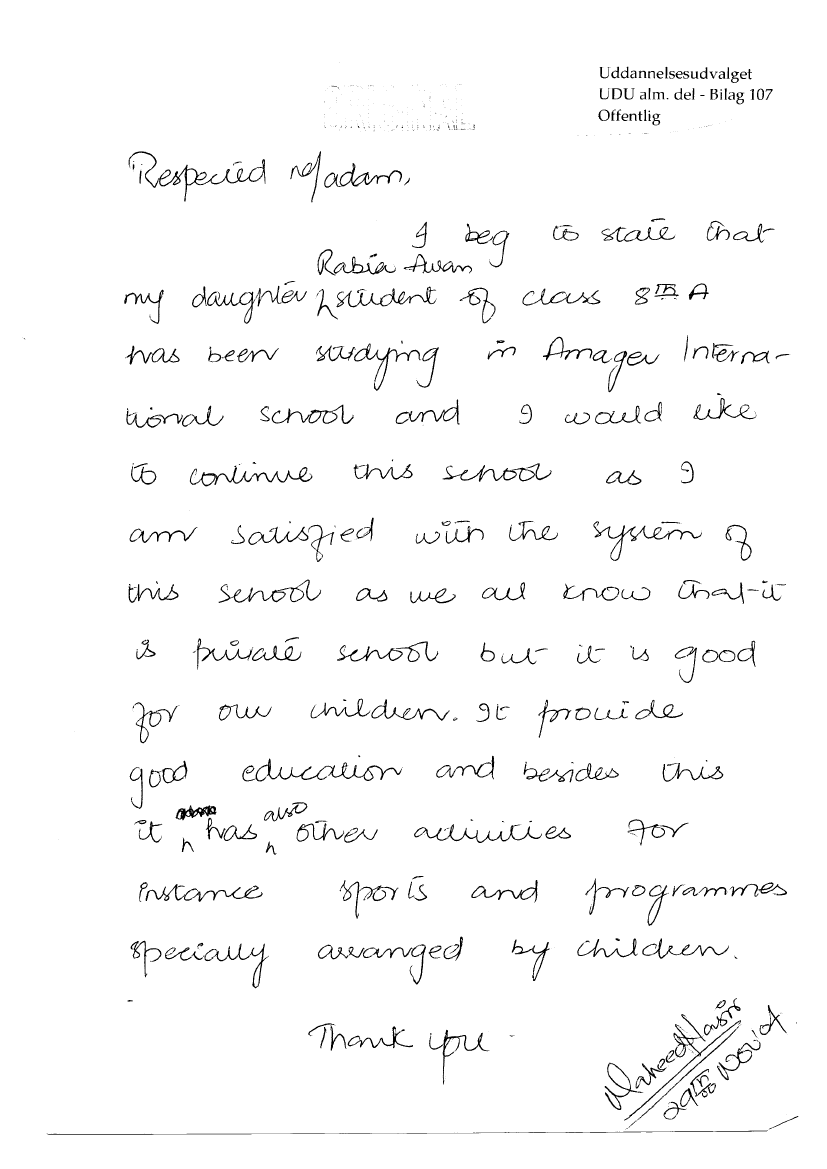 Uddannelsesudvalget
UDU alm. del - Bilag 107
Offentlig
Respected Madam,
I beg to state that
Rabia Awan
my daughter student of class 8TH A
has been studying in Amager Interna-
tional school and I would like
to continue this school as I
am satisfied with the system of
this school as we all know that it
is private school but it is good
for our children. It provide
good education and besides this
also
it has other activities for
instance sports and programmes
specially arranged by children.
Thank you
29TH NOV'04